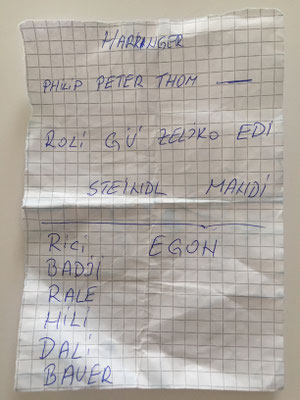 HARRINGER
PHILIP PETER THOM —
ROLI GÜ ZELJKO EDI
STEINDL MANDI
RICI EGON
BADJI
RALE
HILI
DALI
BAUER